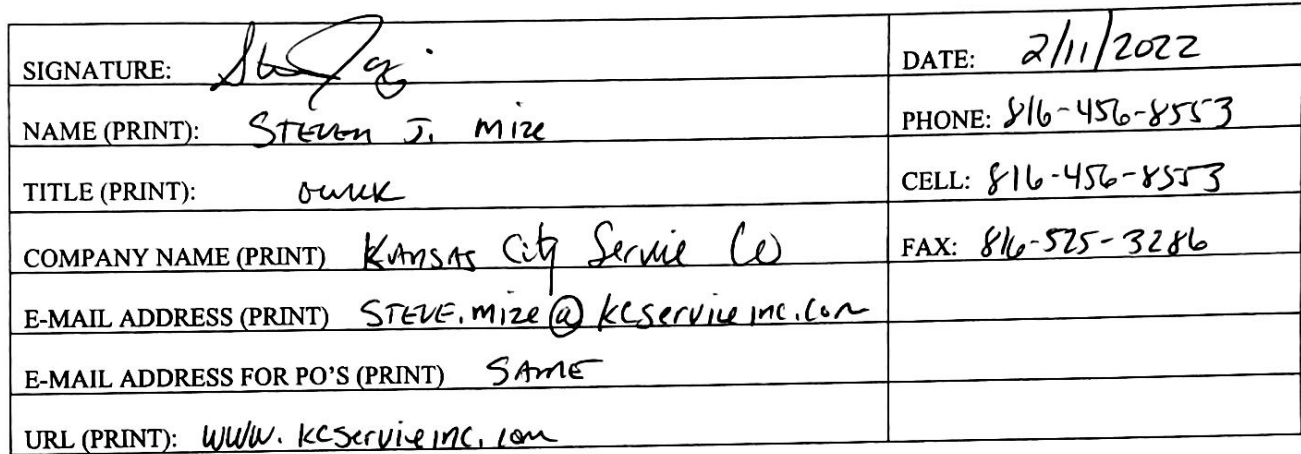 SIGNATURE: DATE: 2/11/2022
NAME (PRINT): STEVEN J. MIZE PHONE: 816-456-8553
TITLE (PRINT): OWNER CELL: 816-456-8553
COMPANY NAME (PRINT) KANSAS City Service Co FAX: 816-525-3286
E-MAIL ADDRESS (PRINT) STEVE.mize@kcserviceinc.com
E-MAIL ADDRESS FOR PO'S (PRINT) SAME
URL (PRINT): WWW.kcserviceinc.com